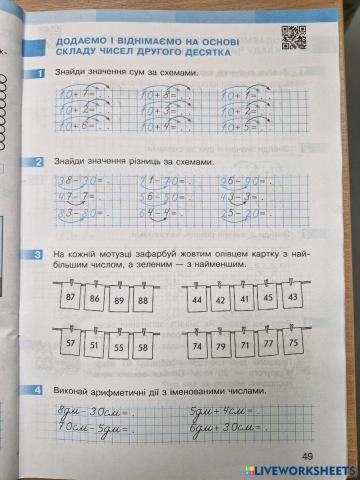 ДОДАЄМО І ВІДНІМАЄМО НА ОСНОВІ
СКЛАДУ ЧИСЕЛ ДРУГОГО ДЕСЯТКА
1 Знайди значення сум за схемами.
10+7= 10+8= 10+1=
10+2= 10+3= 10+2=
10+6= 10+4= 10+5=
2 Знайди значення різниць за схемами.
38-30= 71-70= 96-90=
47-7= 56-50= 43-3=
83-80= 64-4= 25-20=
3 На кожній мотузці зафарбуй жовтим олівцем картку з най-
більшим числом, а зеленим — з найменшим.
87 86 89 88 44 42 41 45 43
57 51 55 58 74 79 71 77 75
4 Виконай арифметичні дії з іменованими числами.
8дм-30см= 5дм+4см=
70см-5дм= 6дм+30см=
49
LIVEWORKSHEETS